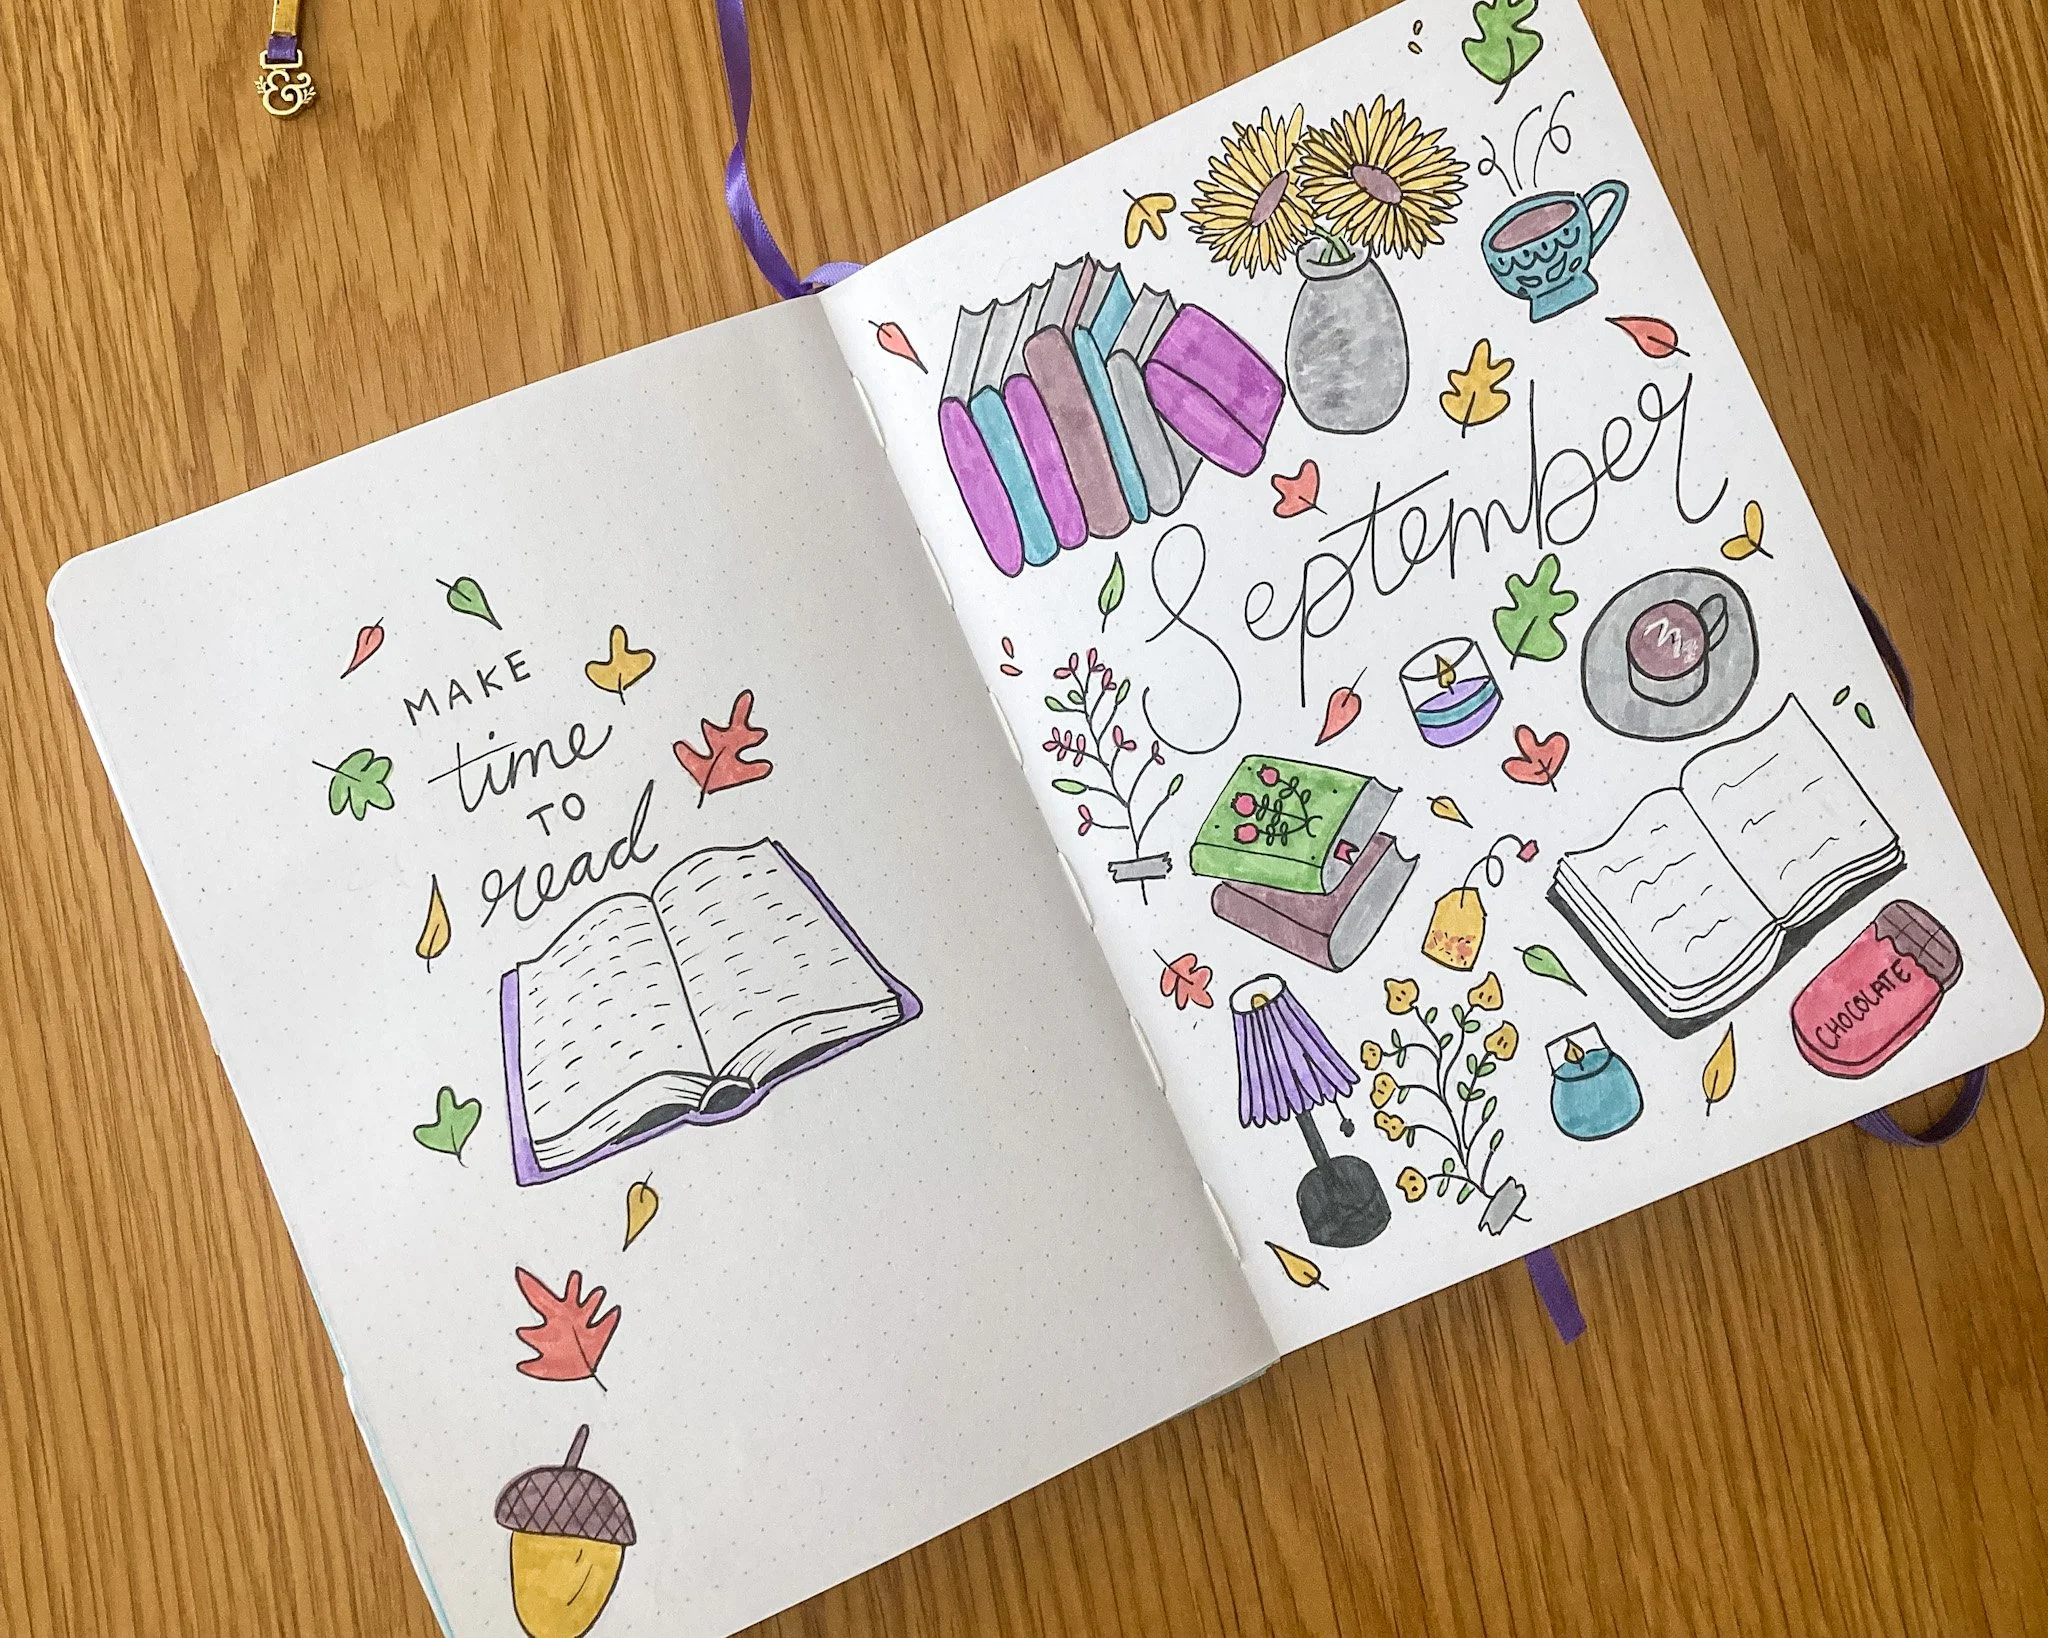 MAKE
time
TO
read
September
CHOCOLATE
&